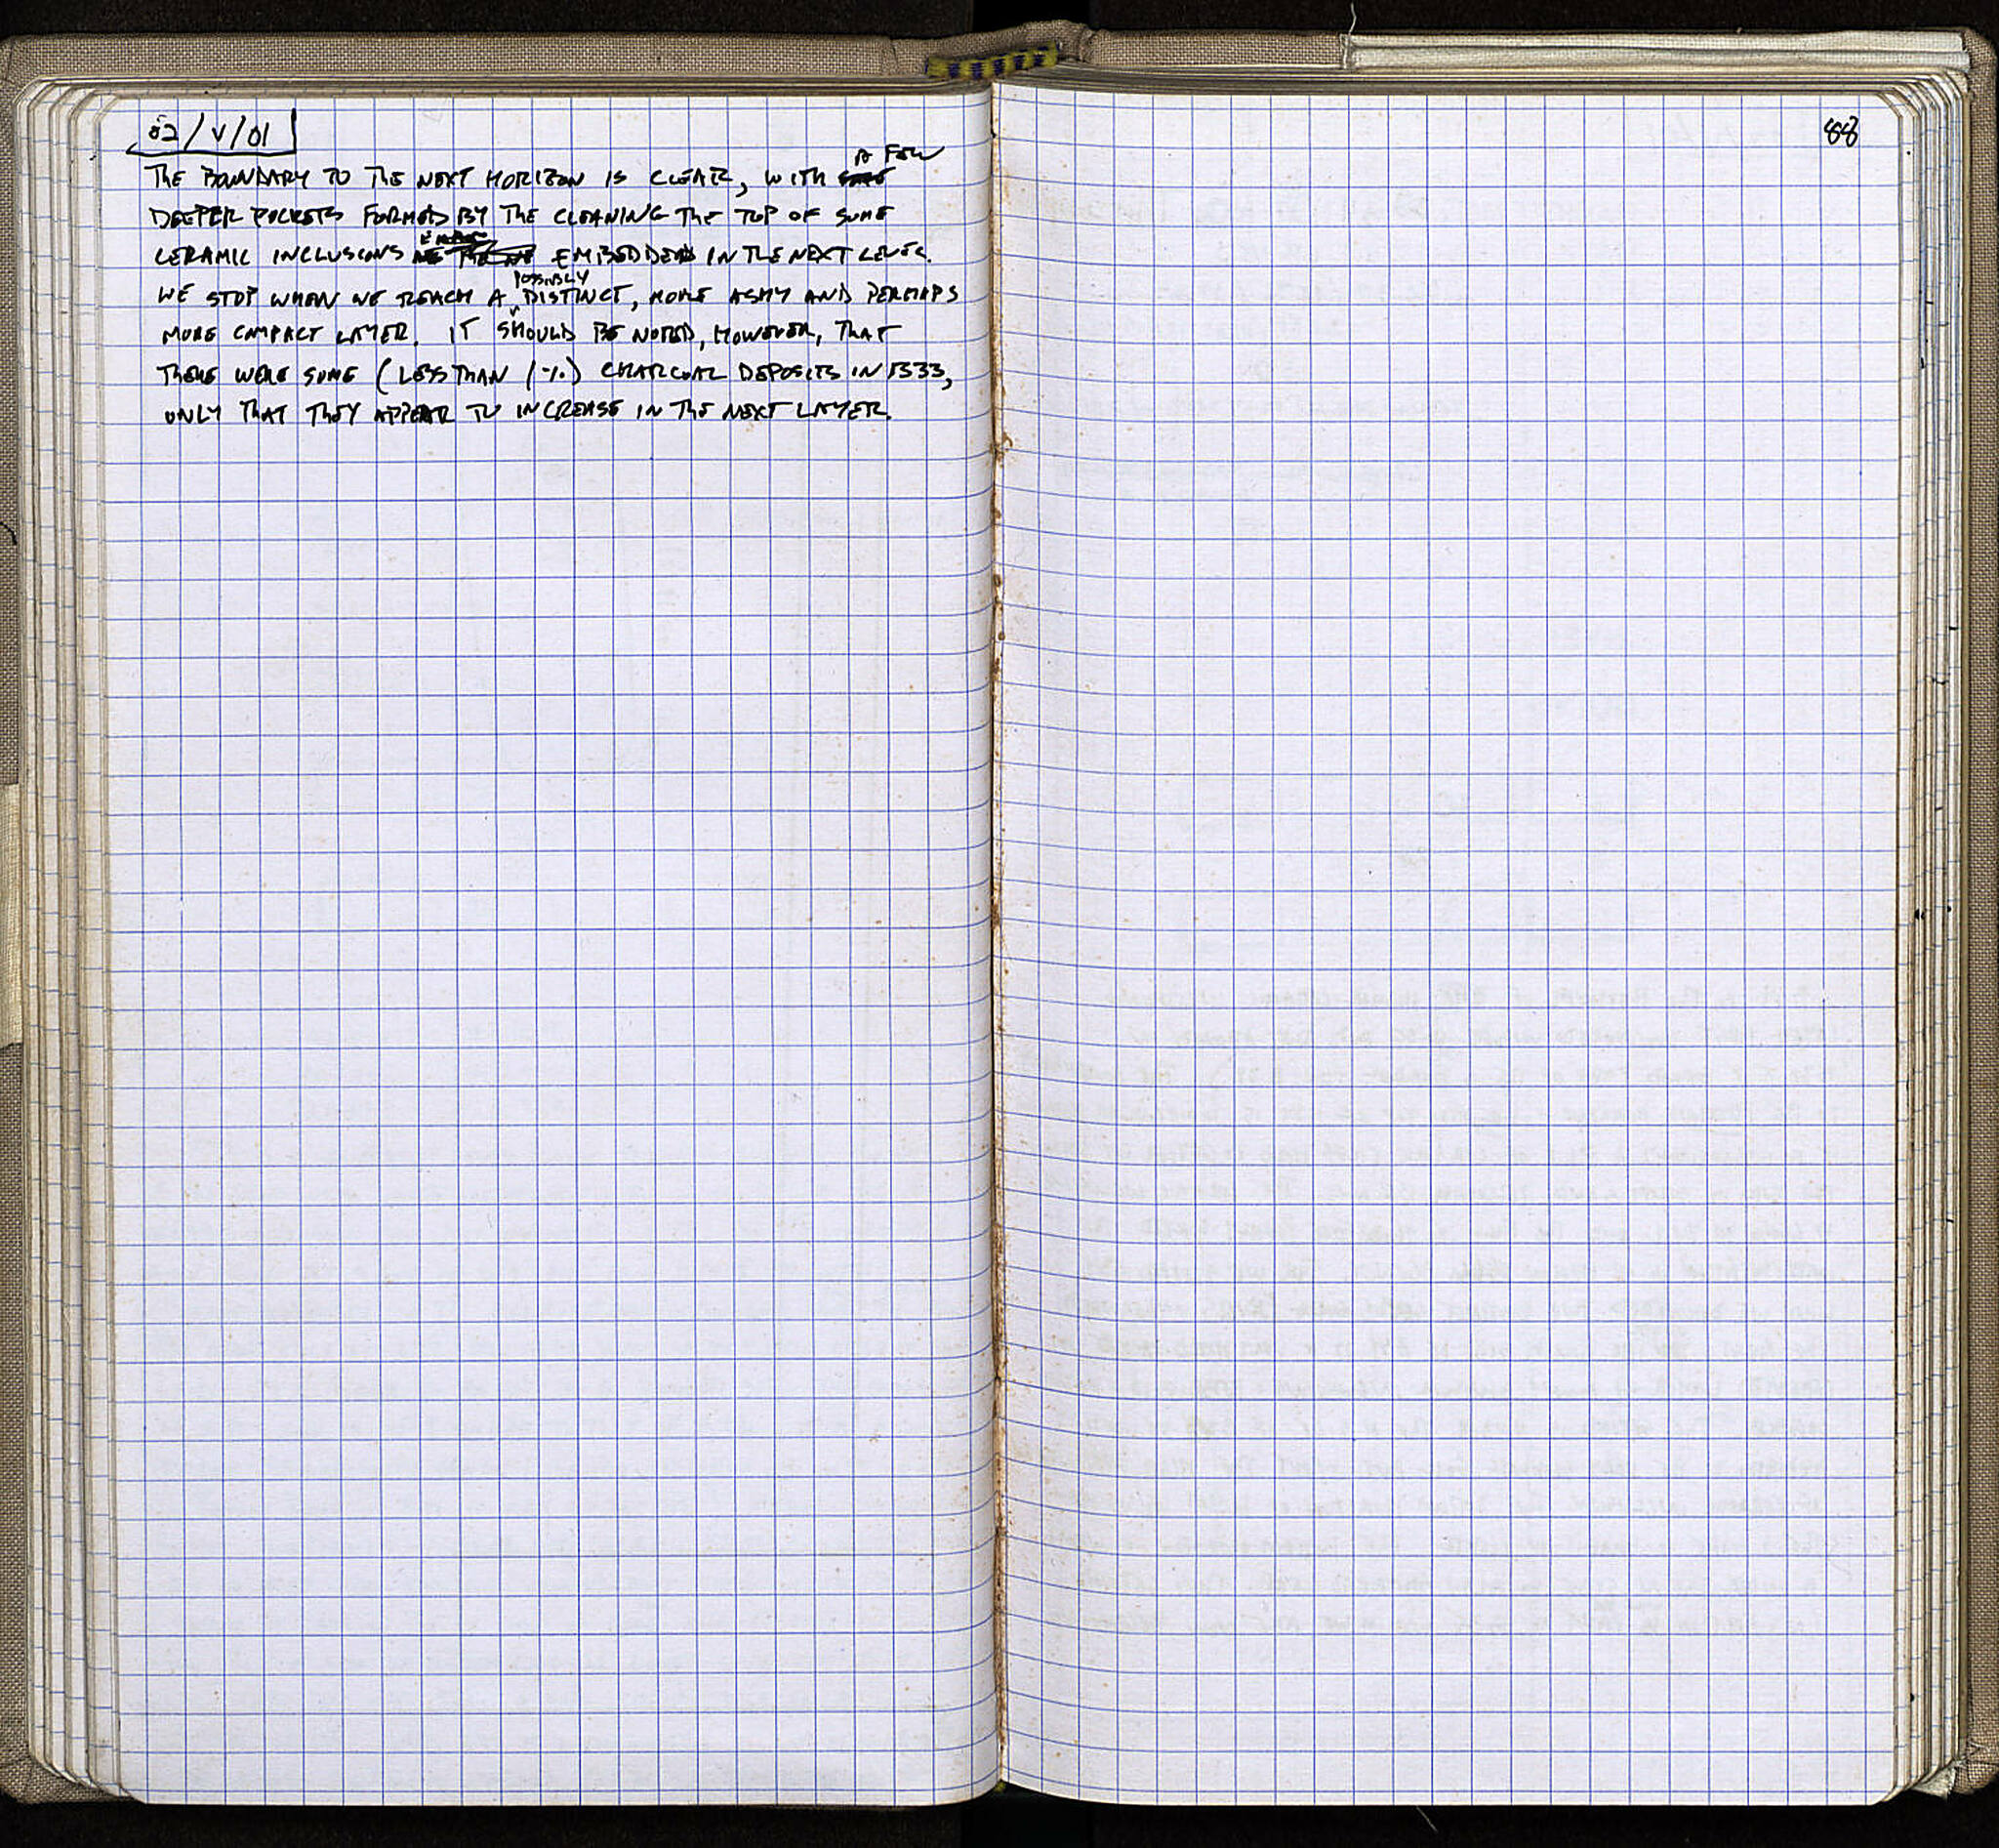 02/V/01
THE BOUNDARY TO THE NEXT HORIZON IS CLEAR, WITH A FEW
DEEPER POCKETS FORMED BY THE CLEANING THE TOP OF SOME
CERAMIC INCLUSIONS EMBEDDED IN THE NEXT LEVEL.
WE STOP WHEN WE REACH A POSSIBLY DISTINCT, MORE ASHY AND PERHAPS
MORE COMPACT LAYER. IT SHOULD BE NOTED, HOWEVER, THAT
THERE WERE SOME (LESS THAN 1%) CHARCOAL DEPOSITS IN 1333,
ONLY THAT THEY APPEAR TO INCREASE IN THE NEXT LAYER.
88